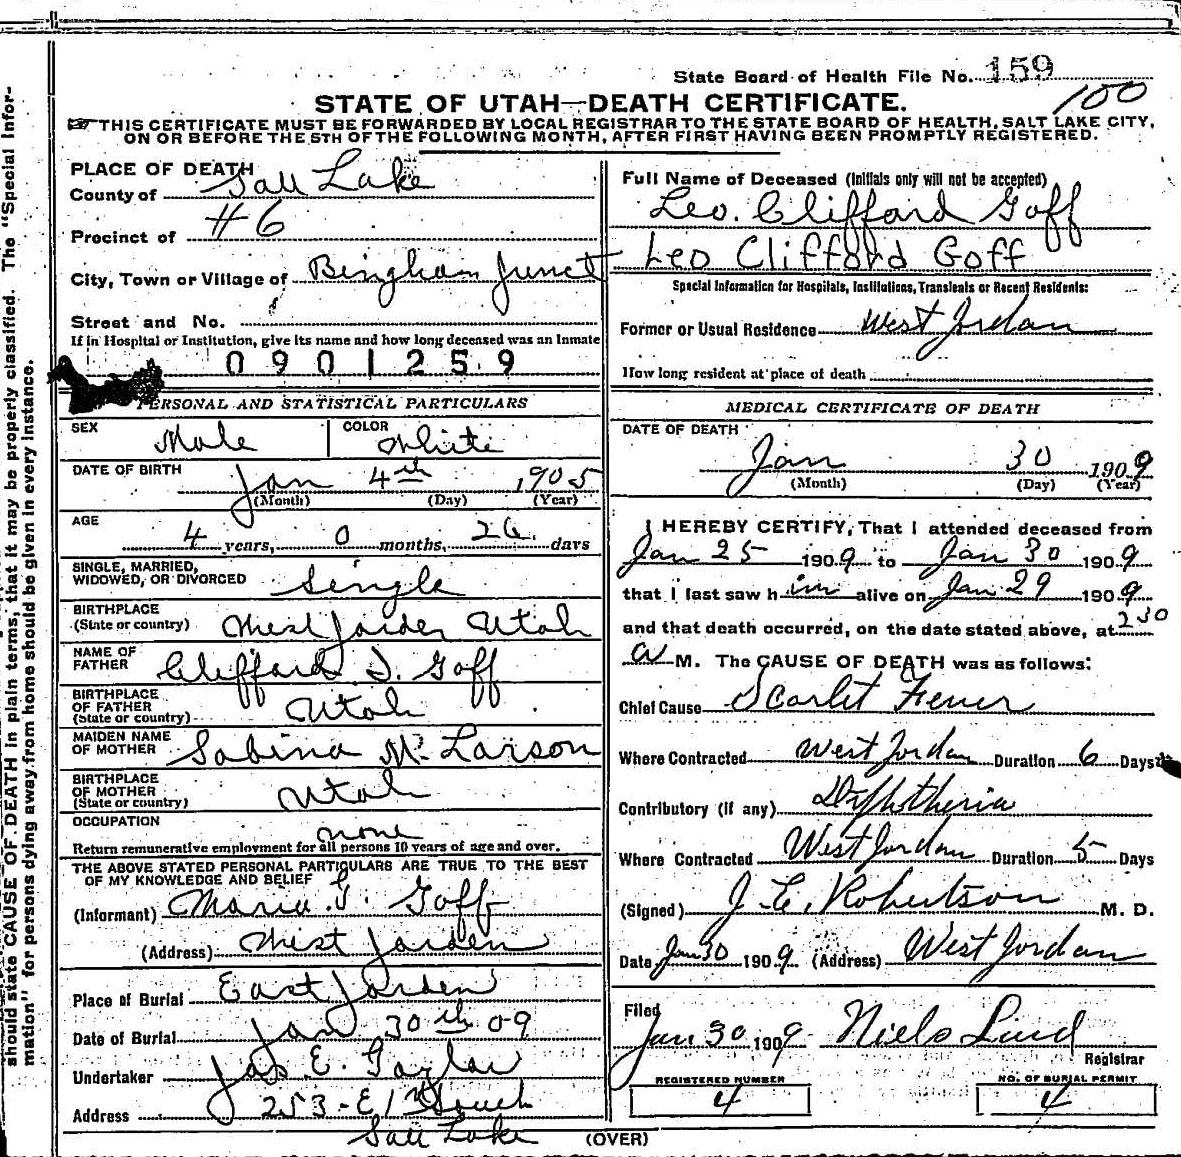 State Board of Health File No. 159
100
STATE OF UTAH—DEATH CERTIFICATE.
THIS CERTIFICATE MUST BE FORWARDED BY LOCAL REGISTRAR TO THE STATE BOARD OF HEALTH, SALT LAKE CITY,
ON OR BEFORE THE 5TH OF THE FOLLOWING MONTH, AFTER FIRST HAVING BEEN PROMPTLY REGISTERED.
PLACE OF DEATH
County of Salt Lake
Precinct of #6
City, Town or Village of Bingham Junct
Street and No.
If in Hospital or Institution, give its name and how long deceased was an Inmate
0901259
PERSONAL AND STATISTICAL PARTICULARS
SEX Male COLOR White
DATE OF BIRTH Jan 4th 1905
(Month) (Day) (Year)
AGE 4 years, 0 months, 26 days
SINGLE, MARRIED,
WIDOWED, OR DIVORCED Single
BIRTHPLACE
(State or country) West Jorden Utah
NAME OF
FATHER Clifford I. Goff
BIRTHPLACE
OF FATHER
(State or country) Utah
MAIDEN NAME
OF MOTHER Sabina M. Larson
BIRTHPLACE
OF MOTHER
(State or country) Utah
OCCUPATION none
Return remunerative employment for all persons 10 years of age and over.
THE ABOVE STATED PERSONAL PARTICULARS ARE TRUE TO THE BEST
OF MY KNOWLEDGE AND BELIEF
(Informant) Maria I. Goff
(Address) West Jorden
Place of Burial East Jorden
Date of Burial Jan 30th 09
Undertaker Jas E. Taylor
Address 253-E 1st South
Salt Lake
(OVER)
Full Name of Deceased (Initials only will not be accepted)
Leo. Clifford Goff
Leo Clifford Goff
Special Information for Hospitals, Institutions, Transients or Recent Residents:
Former or Usual Residence West Jordan
How long resident at place of death
MEDICAL CERTIFICATE OF DEATH
DATE OF DEATH
Jan 30 1909
(Month) (Day) (Year)
I HEREBY CERTIFY, That I attended deceased from
Jan 25 1909 to Jan 30 1909
that I last saw him alive on Jan 29 1909
and that death occurred, on the date stated above, at 230
a M. The CAUSE OF DEATH was as follows:
Chief Cause Scarlet Fever
Where Contracted West Jordan Duration 6 Days
Contributory (if any) Diphtheria
Where Contracted West Jordan Duration 5 Days
(Signed) J. E. Robertson M. D.
Date Jan 30 1909 (Address) West Jordan
Filed
Jan 30 1909 Niels Lind
Registrar
REGISTERED NUMBER NO. OF BURIAL PERMIT
4 4
should state CAUSE OF DEATH in plain terms, that it may be properly classified. The "Special Infor-
mation" for persons dying away from home should be given in every instance.